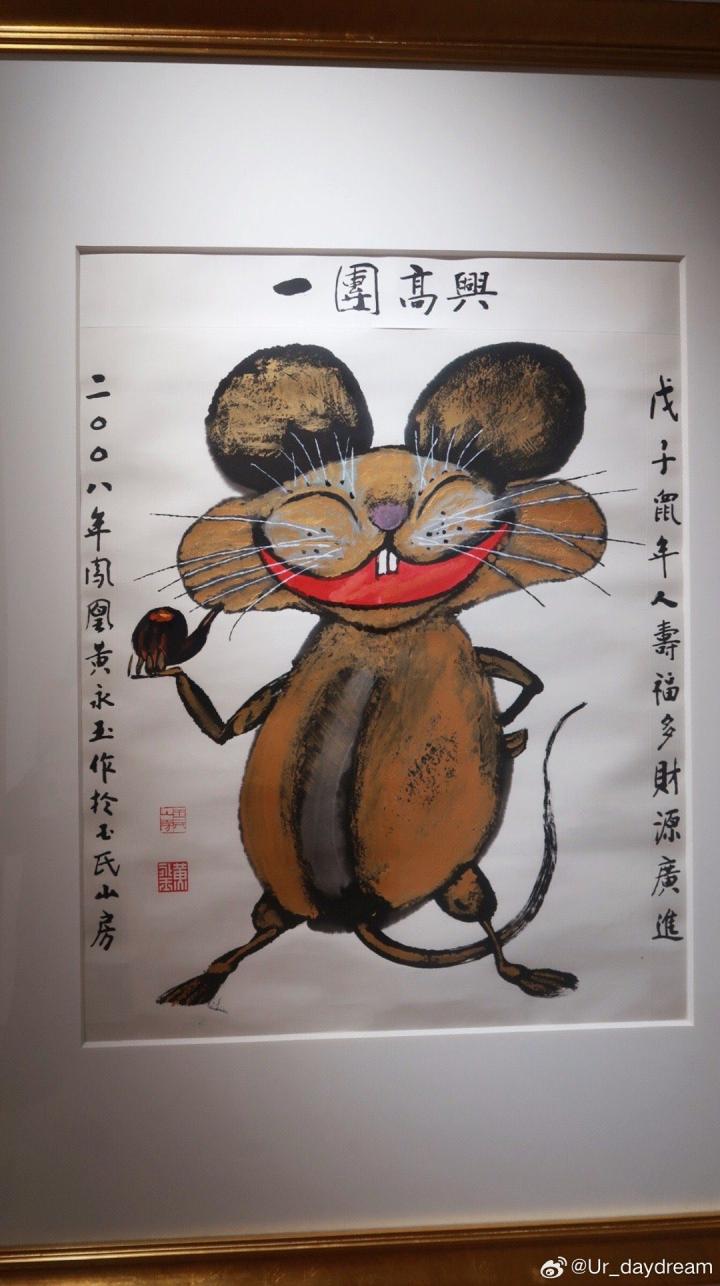 一團高興
戊子鼠年人壽福多財源廣進
二〇〇八年鳳凰黃永玉作於玉氏山房
黃永玉
@Ur_daydream